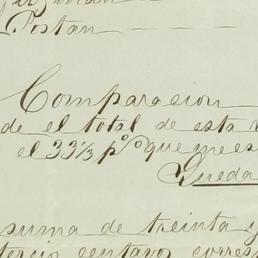 Postan
Comparacion
de el total de esta
el 33⅓ p% que me es
Queda
suma de treinta y
tercio centavo corres